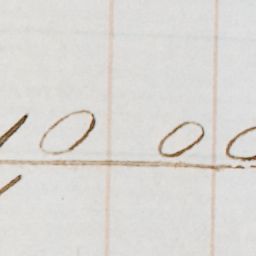 10 00